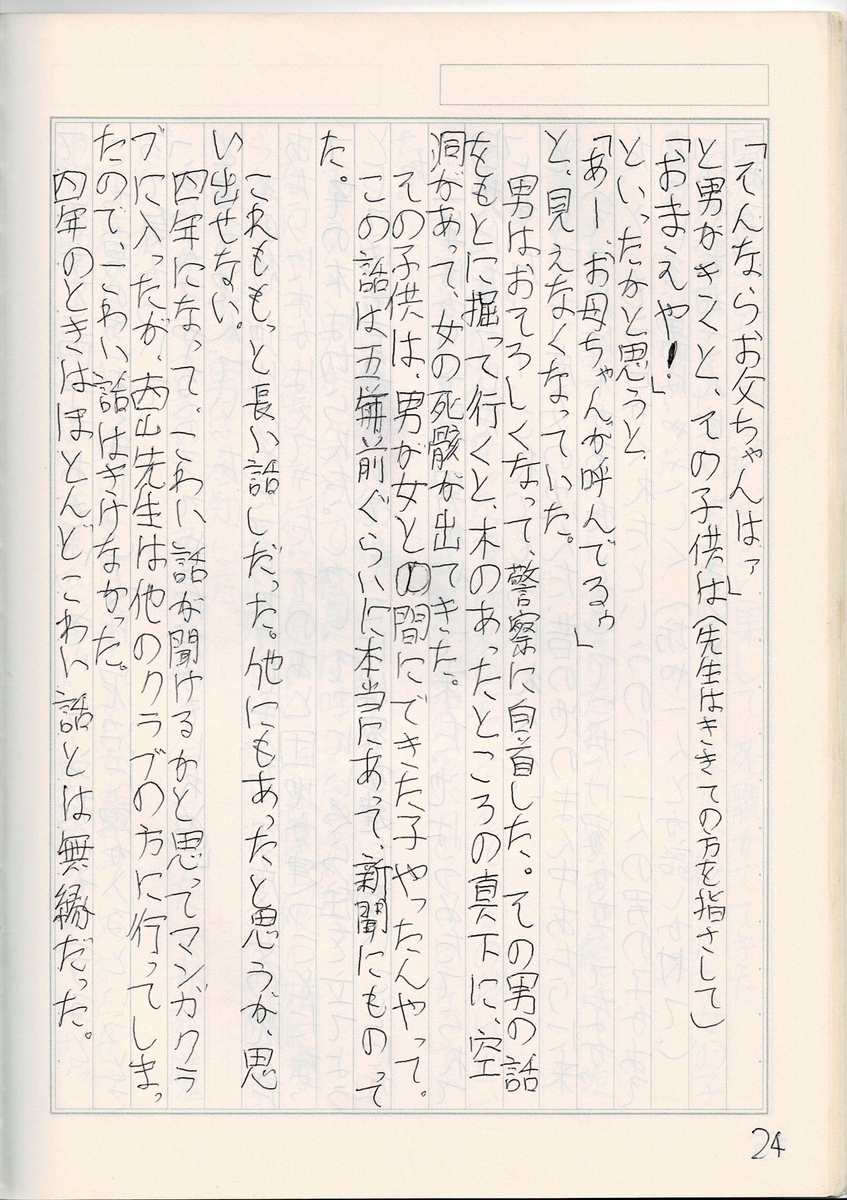 「そんならお父ちゃんはァ」
と男がきくと、その子供は（先生はききての方を指さして）
「おまえや！」
といったかと思うと、
「あー、お母ちゃんが呼んでるゥ」
と、見えなくなっていた。
男はおそろしくなって、警察に自首した。その男の話
をもとに掘って行くと、木のあったところの真下に、空
洞があって、女の死骸が出てきた。
その子供は、男が女との間にできた子やったんやって。
この話は五年前ぐらいに本当にあって、新聞にものって
た。
これももっと長い話しだった。他にもあったと思うが、思
い出せない。
四年になって、こわい話が聞けるかと思ってマンガクラ
ブに入ったが、西山先生は他のクラブの方に行ってしまっ
たので、こわい話はきけなかった。
四年のときはほとんどこわい話とは無縁だった。
24